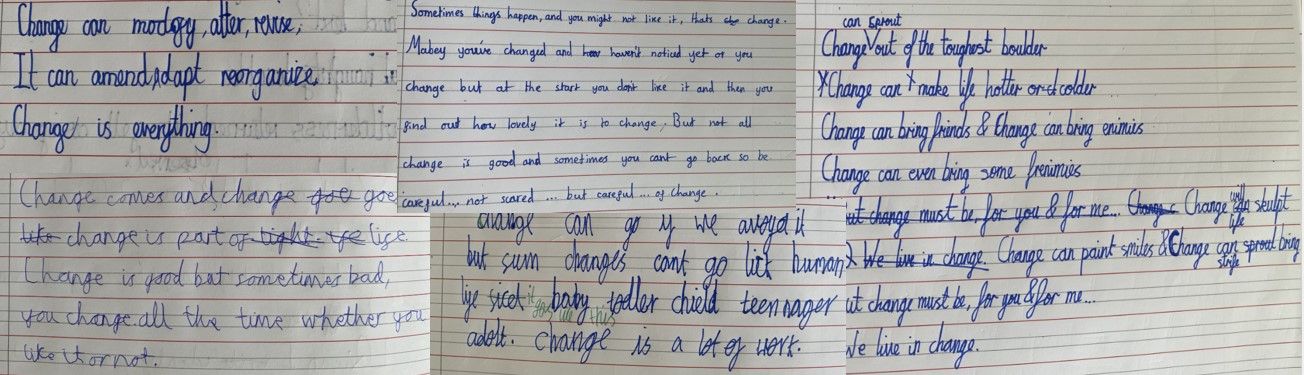 Change can modogy, alter, revise,
It can amend, adapt reorganize
Change is everything.
Change comes and change goe goe
like change is part of tight. ye life.
Change is good but sometimes bad,
you change all the time whether you
like it or not.
Sometimes things happen, and you might not like it, thats che change.
Mabey youve changed and how haven't noticed yet or you
change but at the start you don't like it and then you
find out how lovely it is to change. But not all
change is good and sometimes you cant go back so be
careful... not scared ... but careful ... of change.
change can go if we avoyd it
but sum changes cant go lick human
life sicel it goes like this baby todler chield teennager
adolt. change is a lot of work.
can sprout
Change out of the toughest boulder
Change can make life hotter or colder
Change can bring friends & Change can bring enimies
Change can even bring some frenimies
ut change must be, for you & for me... Change c Change will skulpt life
We live in change. Change can paint smiles & Change can sprout bring strife
ut change must be, for you & for me...
We live in change.